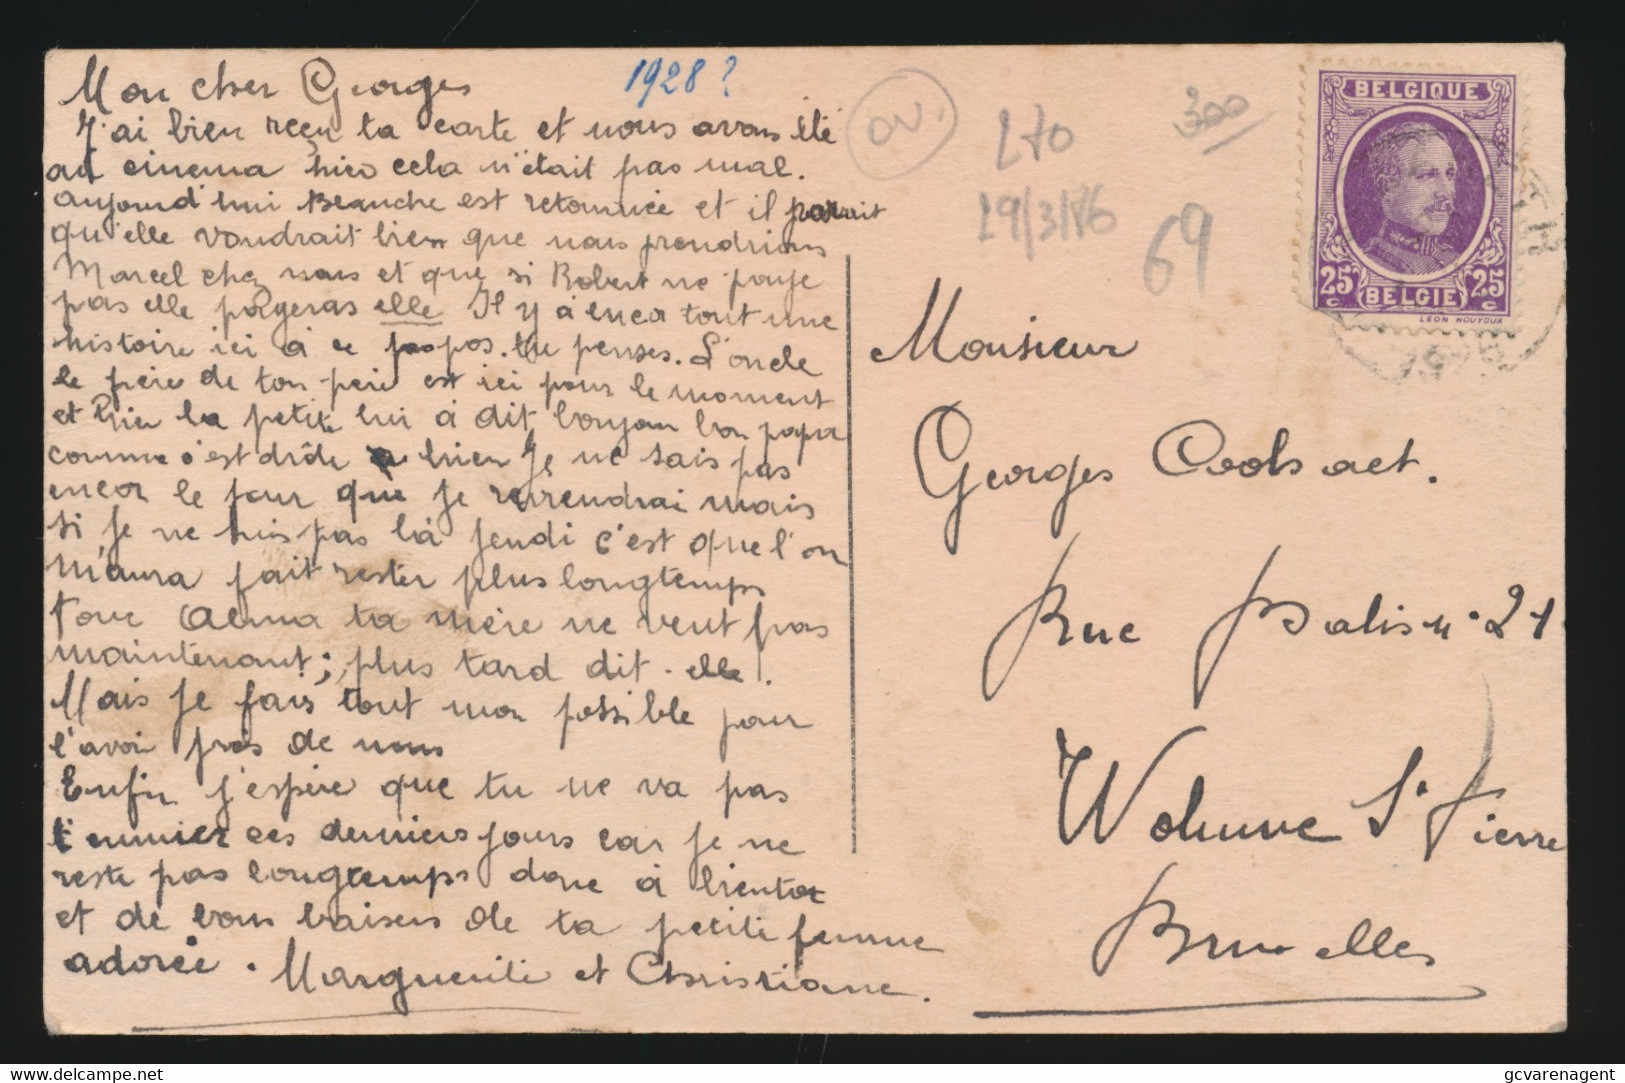 Mon cher Georges
J'ai bien reçu ta carte et nous avons été
au cinema hier cela n'était pas mal.
aujourd'hui Blanche est retournée et il parait
qu'elle voudrait bien que nous prendrions
Marcel chez nous et que si Robert ne paye
pas elle payeras elle Il y à encor tout une
histoire ici à ce propos. tu penses. L'oncle
le frère de ton père est ici pour le moment
et la petite lui à dit bonjour bon papa
comme c'est drôle bien Je ne sais pas
encor le jour que je reviendrai mais
si je ne suis pas là jeudi c'est que l'on
m'aura fait rester plus longtemps
Pour Alma ta mère ne veut pas
maintenant; plus tard dit-elle.
Mais je fais tout mon possible pour
l'avoir près de nous
Enfin j'espère que tu ne va pas
t'ennuier ces derniers jours car je ne
reste pas longtemps donc à bientot
et de bons baisers de ta petite femme
adorée. Marguerite et Christiane.
1928?
OV.
270
29/3/76
300
69
BELGIQUE
25 c 25 c
BELGIE
LEON HOUYOUX
Monsieur
Georges Coolsaet.
Rue 21
Woluwe St Pierre
Bruxelles
https://www.delcampe.net
gcvarenagent